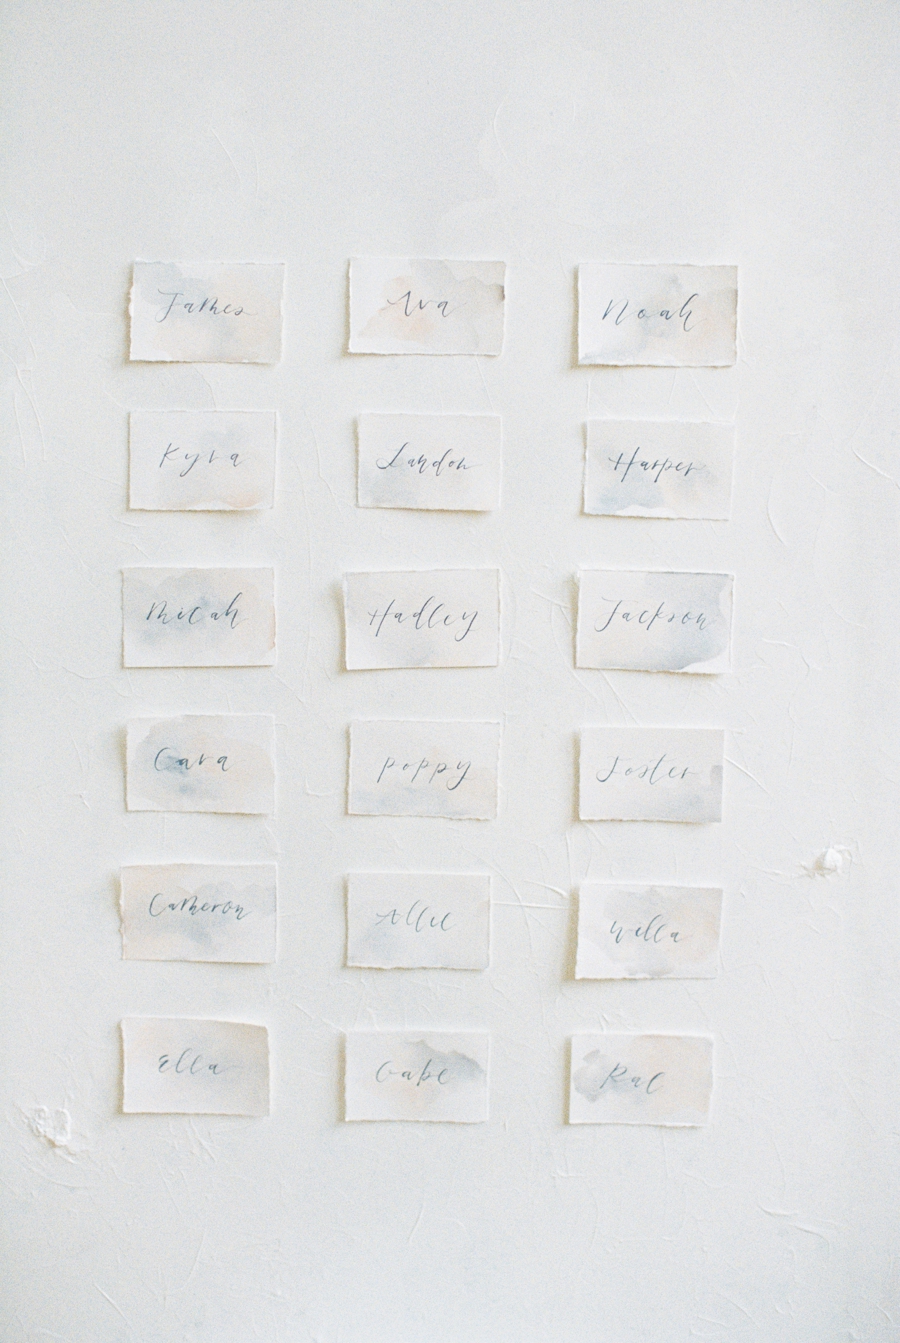 James
Ava
Noah
Kyra
Landon
Harper
Micah
Hadley
Jackson
Cara
Poppy
Foster
Cameron
Allie
Willa
Ella
Gabe
Rae